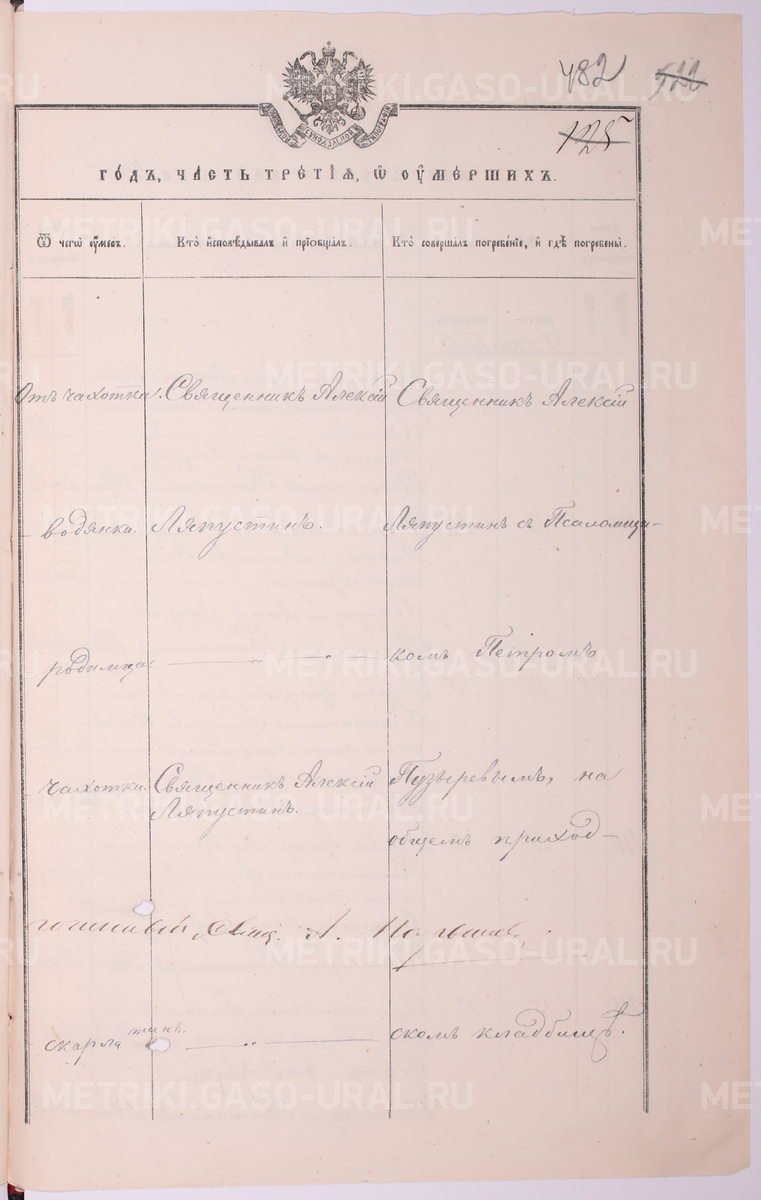 482 522
125
ГО́ДЪ, ЧА́СТЬ ТРЕ́ТІѦ, Ѿ ОУ҆МЕ́РШИХЪ.
Ѿ чегѡ̀ оу҆́меръ.
Кто̀ и҆сповѣ́дывалъ и҆ прїѡбща́лъ.
Кто̀ соверша́лъ погребе́нїе, и҆ гдѣ̀ погребены̀.
Отъ чахотки. Священникъ Алексій Священникъ Алексій
водянки. Ляпустинъ. Ляпустинъ съ Псаломщи-
родимца — „ — „ — комъ Петромъ
чахотки. Священникъ Алексій Пузыревымъ, на
Ляпустинъ.
общемъ приход-
Свящ. А.
скарлатины. — „ — скомъ кладбищѣ.
METRIKI.GASO-URAL.RU